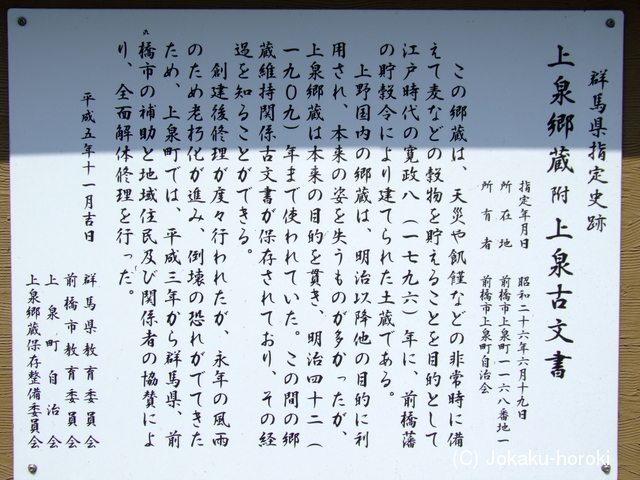 群馬県指定史跡
上泉郷蔵附上泉古文書
指定年月日　昭和二十六年六月十九日
所在地　前橋市上泉町一一六八番地一
所有者　前橋市上泉町自治会
この郷蔵は、天災や飢饉などの非常時に備
えて麦などの穀物を貯えることを目的として
江戸時代の寛政八（一七九六）年に、前橋藩
の貯穀令により建てられた土蔵である。
上野国内の郷蔵は、明治以降他の目的に利
用され、本来の姿を失うものが多かったが、
上泉郷蔵は本来の目的を貫き、明治四十二（
一九〇九）年まで使われていた。この間の郷
蔵維持関係古文書が保存されており、その経
過を知ることができる。
創建後修理が度々行われたが、永年の風雨
のため老朽化が進み、倒壊の恐れがでてきた
ため、上泉町では、平成三年から群馬県、前
橋市の補助と地域住民及び関係者の協賛によ
り、全面解体修理を行った。
平成五年十一月吉日
群馬県教育委員会
前橋市教育委員会
上泉町自治会
上泉郷蔵保存整備委員会
(C) Jokaku-horoki